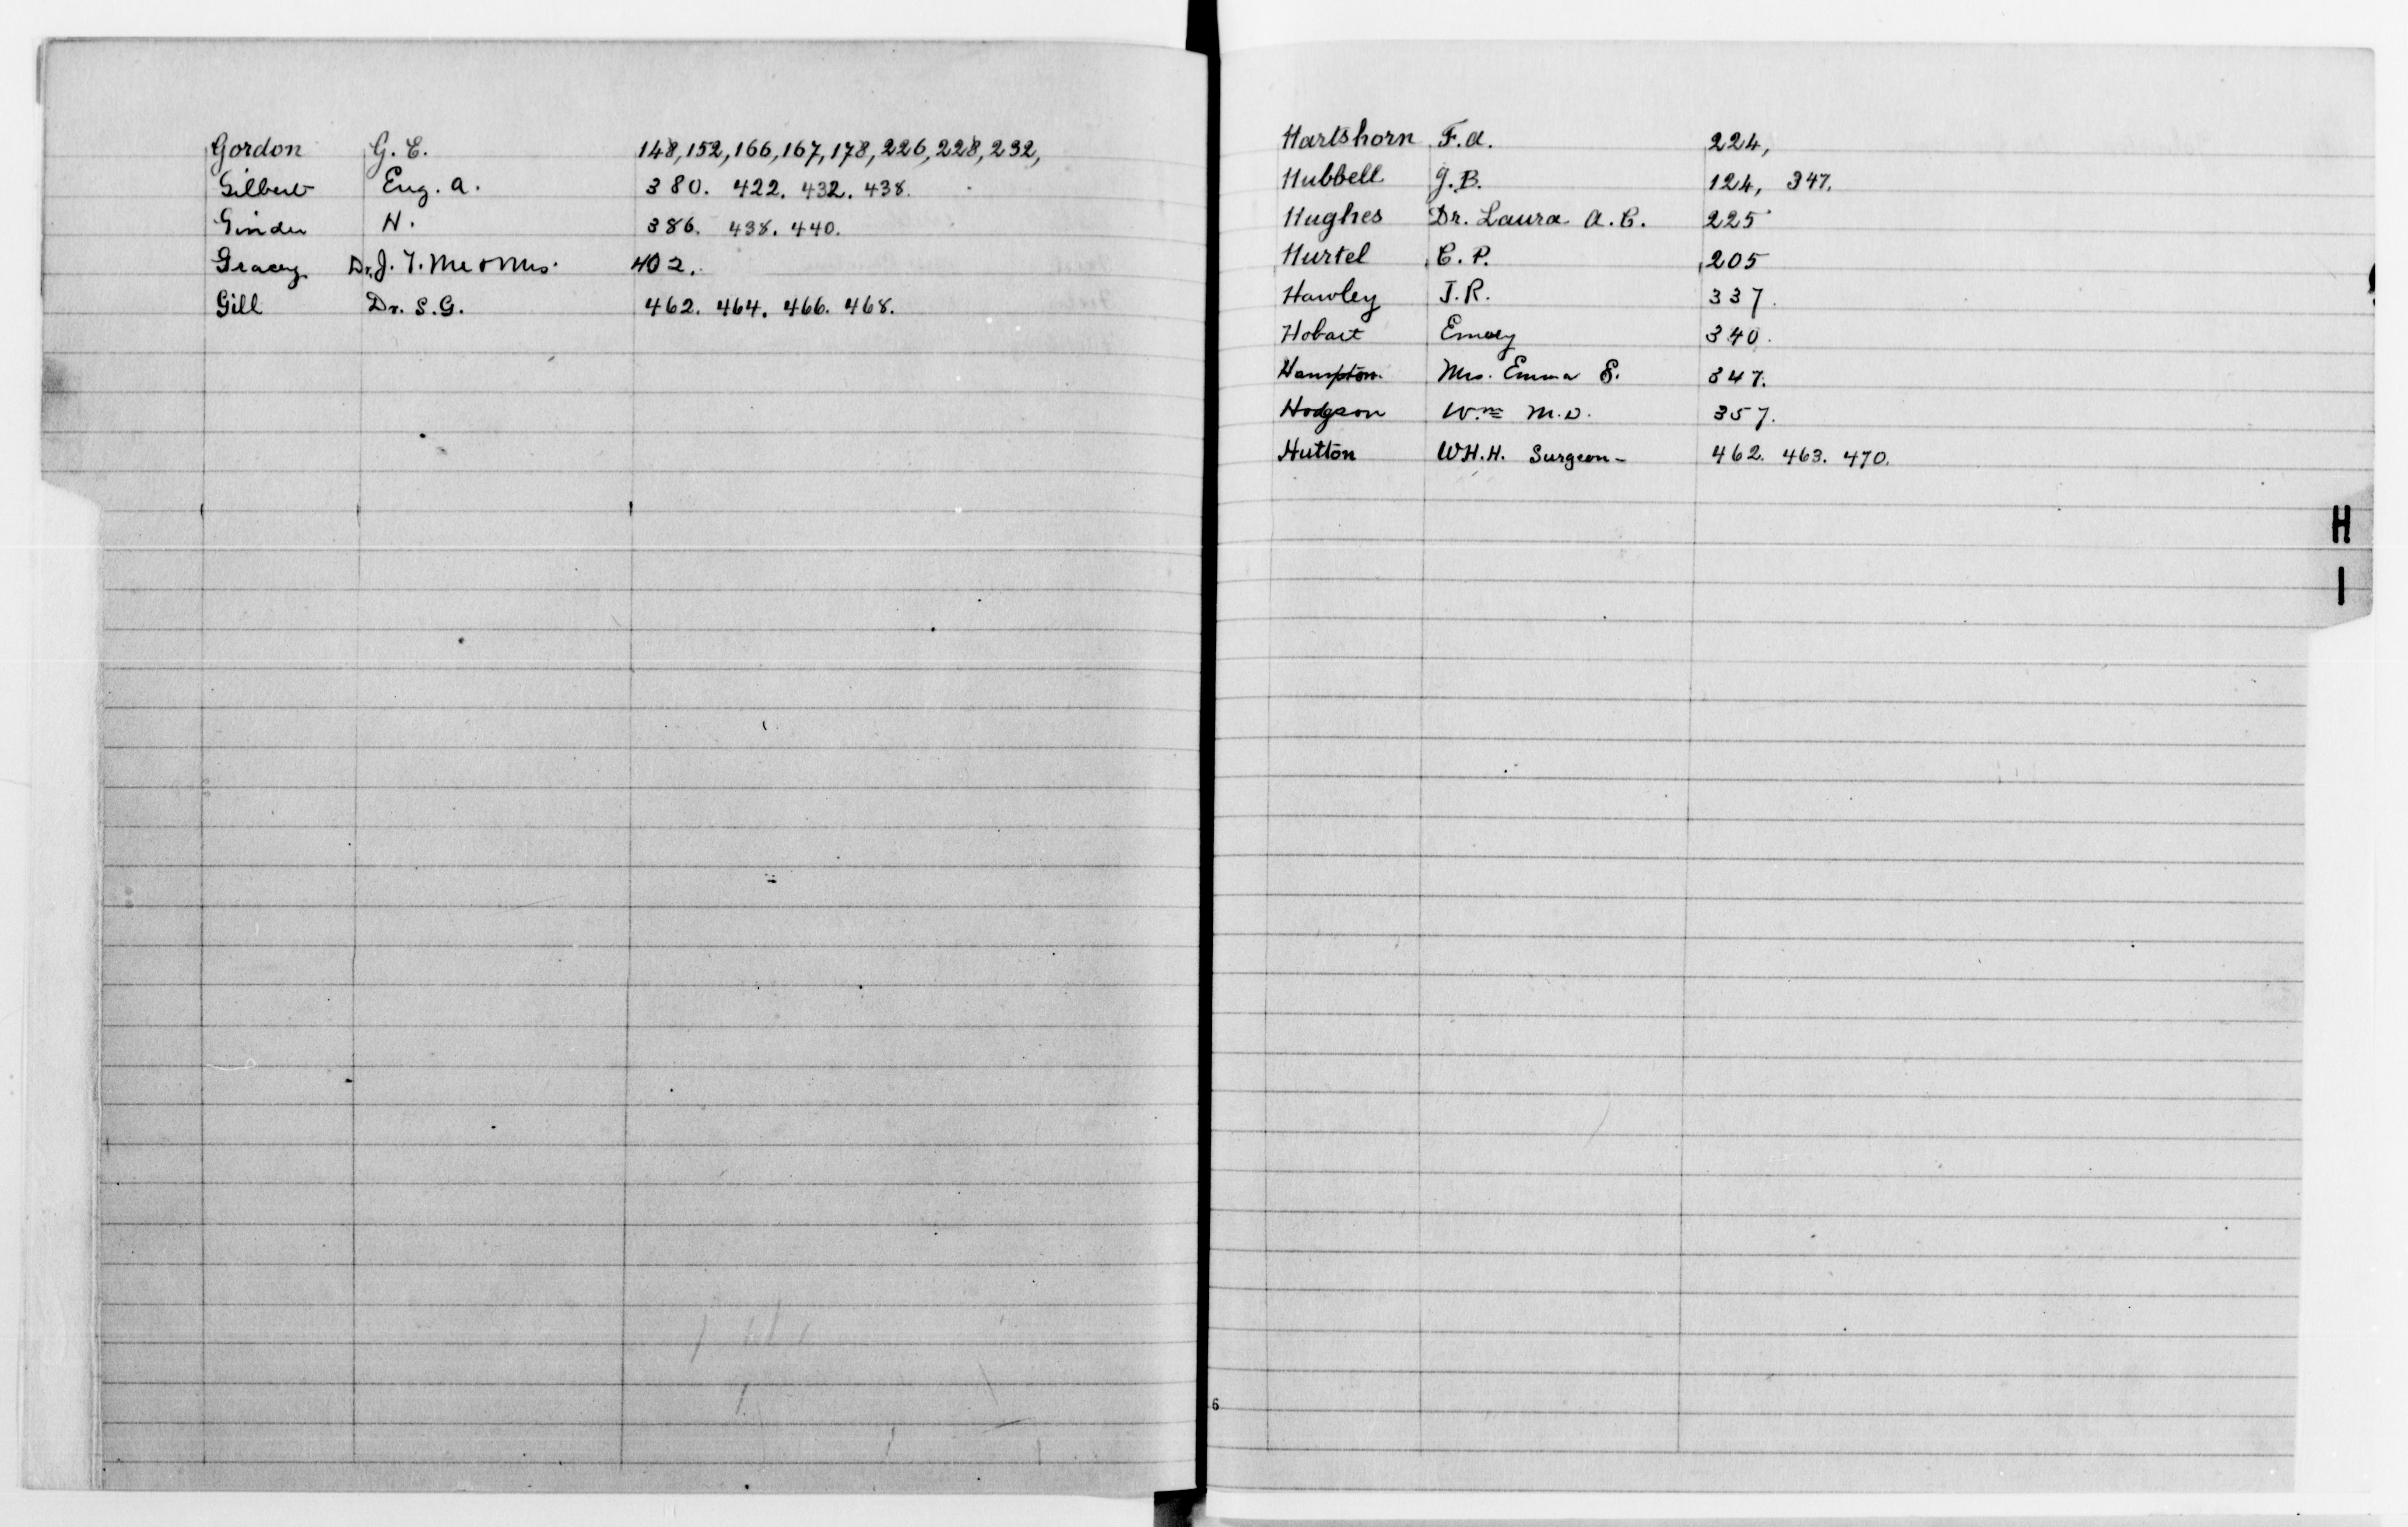 Gordon G. E. 148, 152, 166, 167, 178, 226, 228, 232,
Gilbert Eug. A. 380. 422. 432. 438.
Ginder H. 386. 438. 440.
Gracey Dr. J. T. Mr & Mrs. 402.
Gill Dr. S. G. 462. 464. 466. 468.
Hartshorn F. A. 224,
Hubbell G. B. 124, 347.
Hughes Dr. Laura A. C. 225
Hurtel C. P. 205
Hawley J. R. 337.
Hobart Emory 340.
Hampton. Mrs. Emma S. 347.
Hodgson Wm M. D. 357.
Hutton W.H.H. Surgeon- 462. 463. 470.
H
I
6